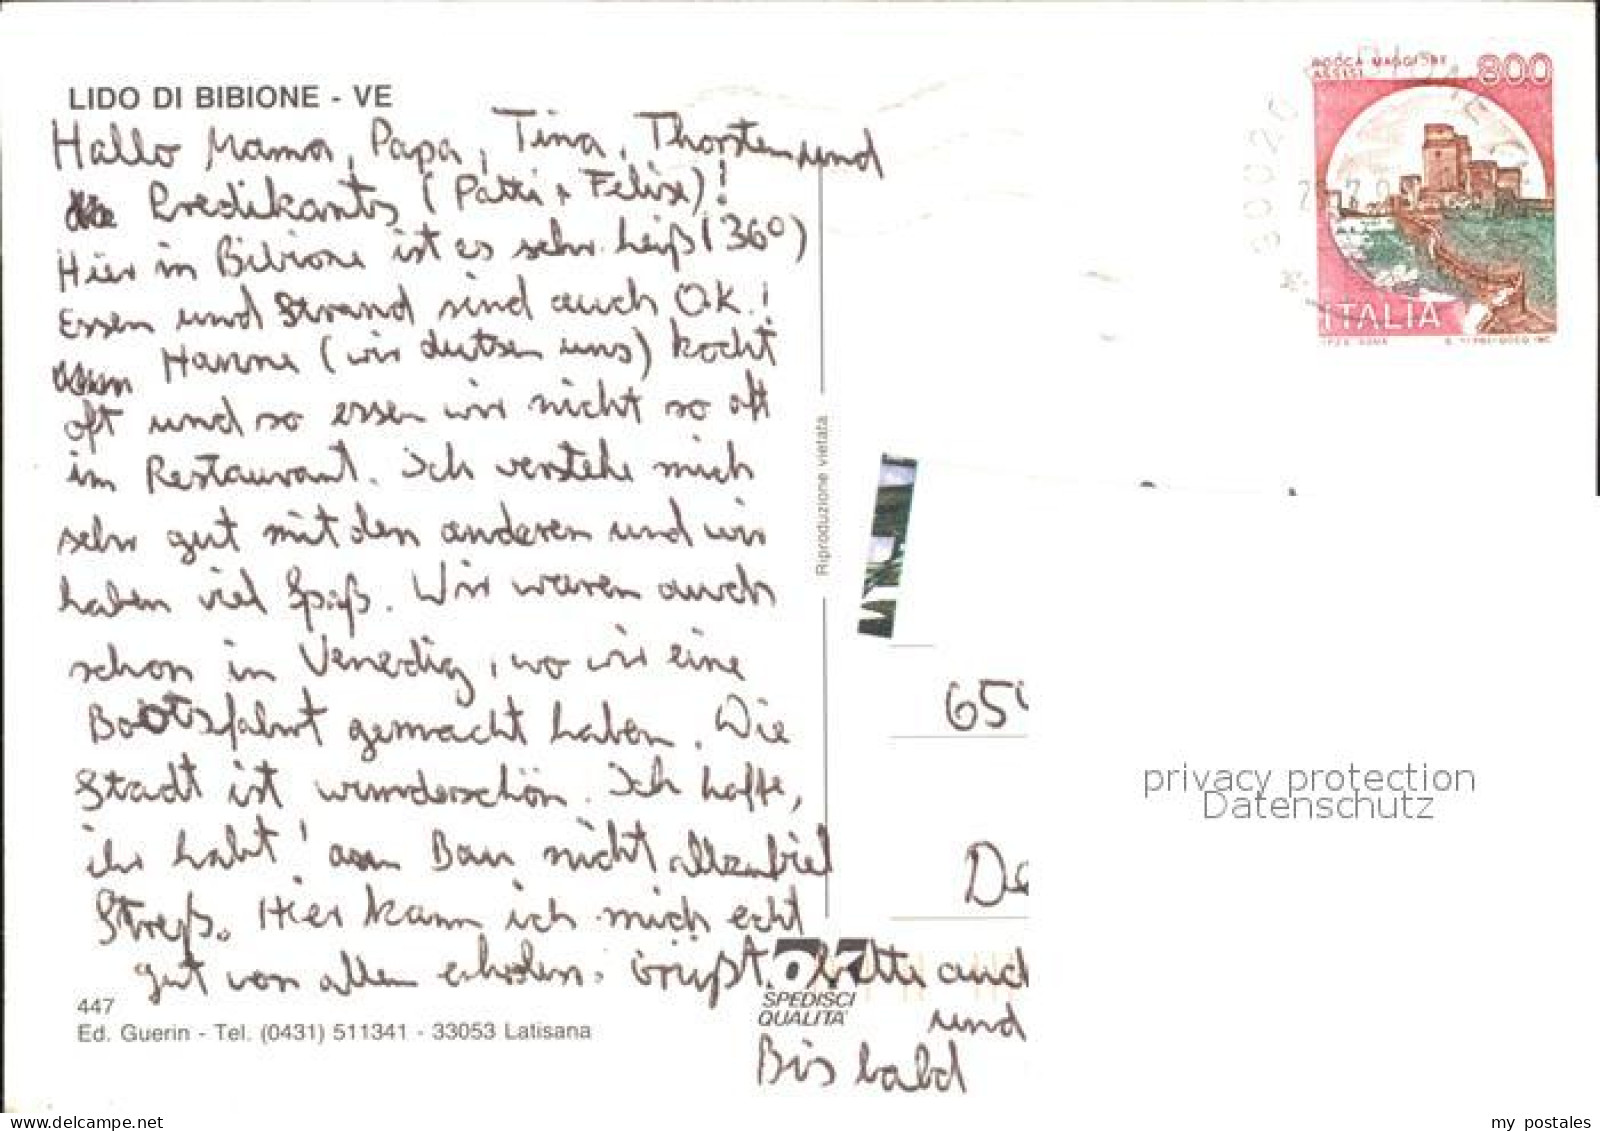 LIDO DI BIBIONE - VE
Hallo Mama, Papa, Tina, Thorsten und
die Predikants (Patti + Felix)!
Hier in Bibione ist es sehr heiß (36°)
Essen und Strand sind auch O.K.!
Hanne (wir dutsen uns) kocht
oft und so essen wir nicht so oft
im Restaurant. Ich verstehe mich
sehr gut mit den anderen und wir
haben viel Spaß. Wir waren auch
schon in Venedig, wo wir eine
Bootsfahrt gemacht haben. Die
Stadt ist wunderschön. Ich hoffe,
ihr habt! am Bau nicht allzuviel
Streß. Hier kann ich mich echt
gut von allem erholen. Grüßt bitte auch
und
Bis bald
447
Ed. Guerin - Tel. (0431) 511341 - 33053 Latisana
Riproduzione vietata
SPEDISCI
QUALITA'
ROCCA MAGGIORE
ASSISI
800
ITALIA
30020
65
De
privacy protection
Datenschutz
www.delcampe.net
my postales